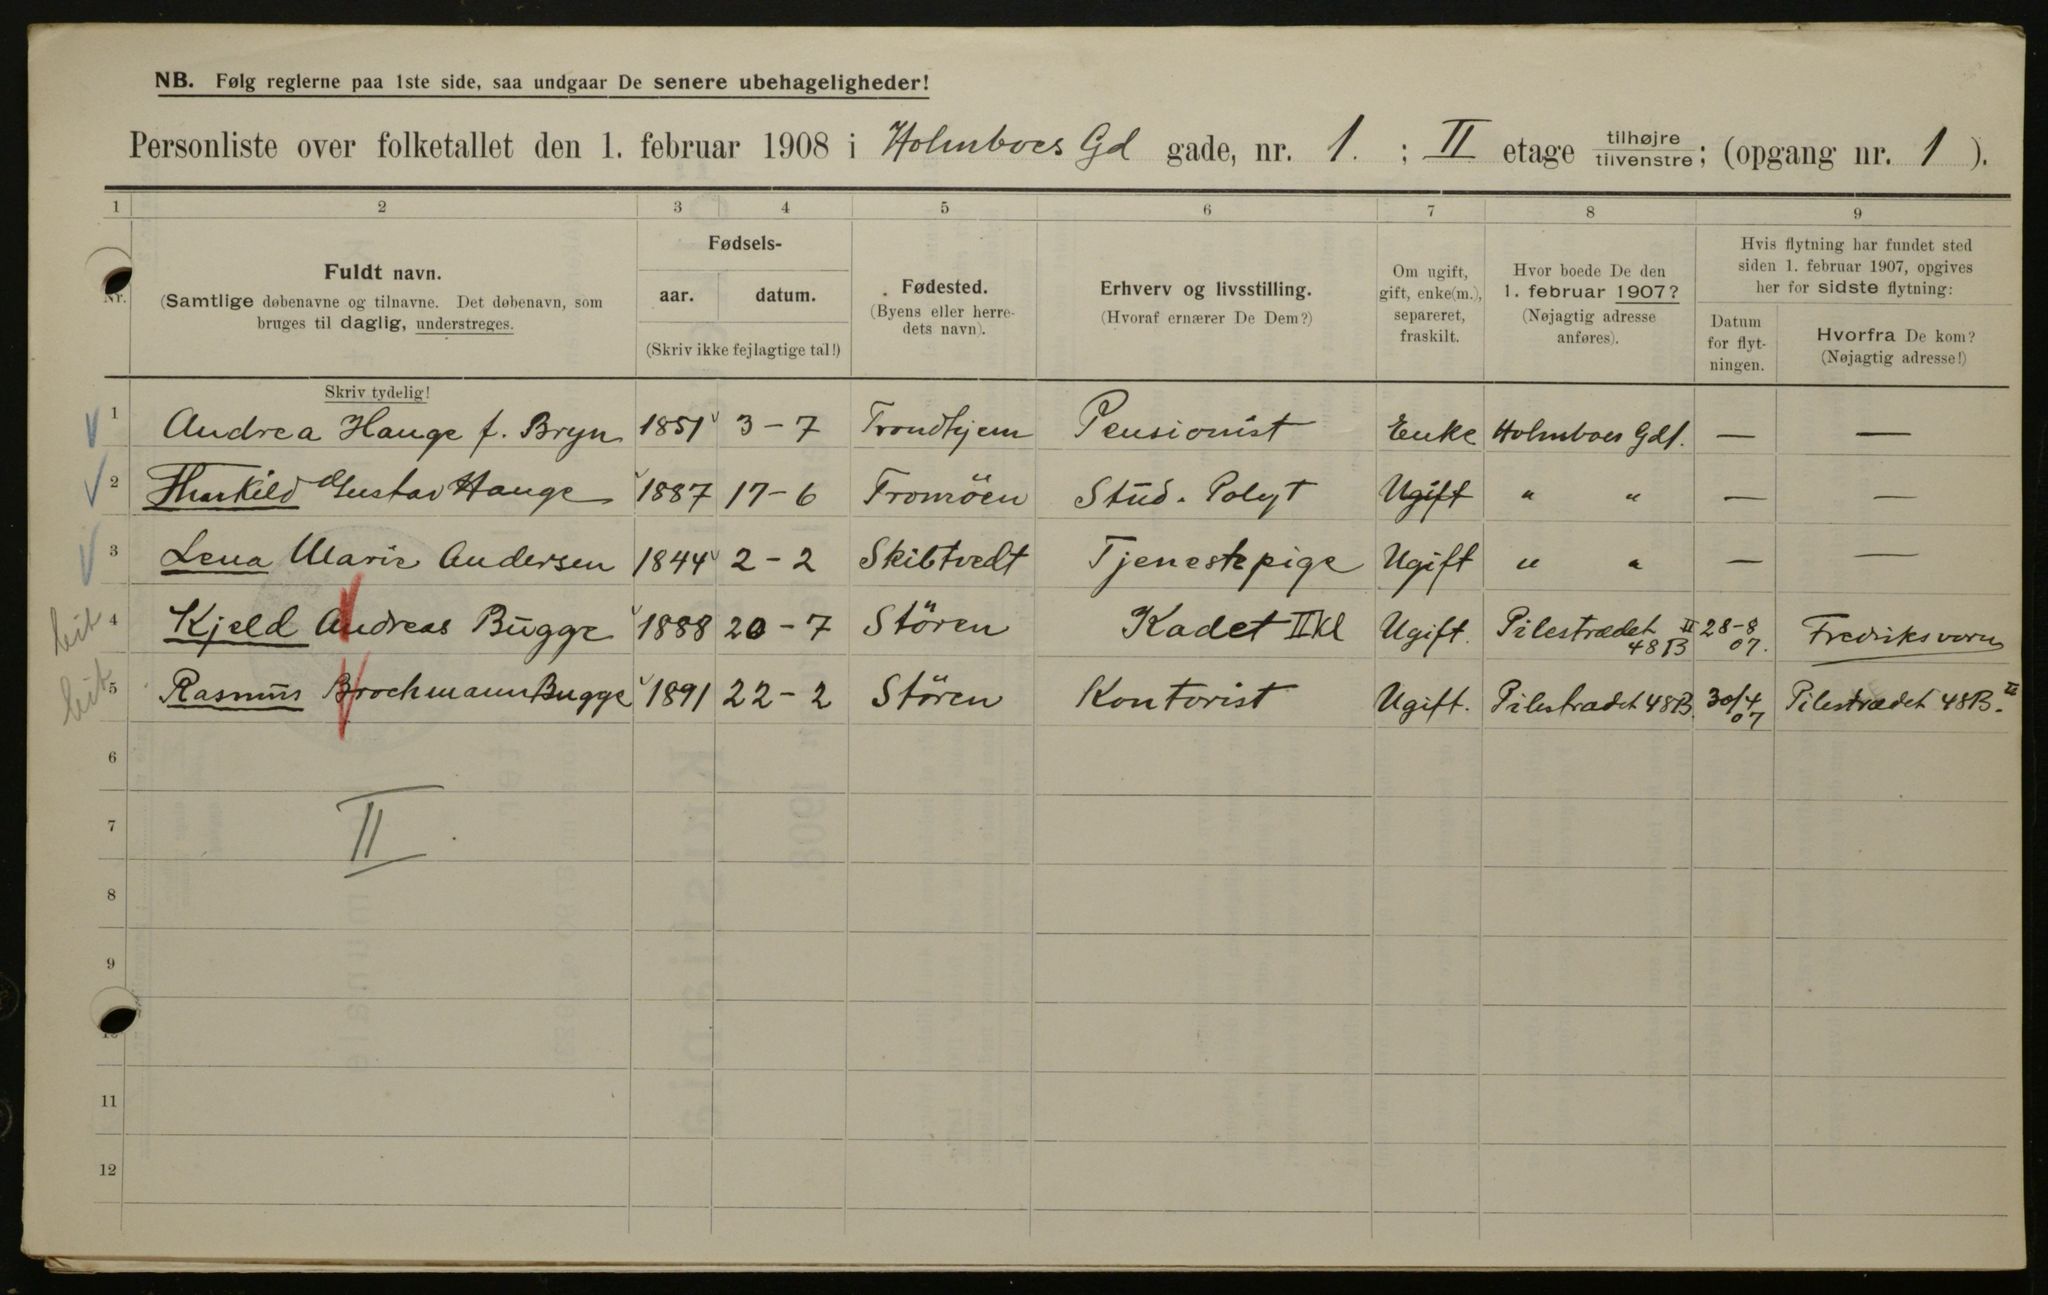 NB. Følg reglerne paa 1ste side, saa undgaar De senere ubehageligheder!
Personliste over folketallet den 1. februar 1908 i Holmboes Gd gade, nr. 1. ; II etage tilhøjre tilvenstre; (opgang nr. 1 ).
1 2 3 4 5 6 7 8 9
Nr.
Fuldt navn.
(Samtlige døbenavne og tilnavne. Det døbenavn, som
bruges til daglig, understreges.
Fødsels-
aar. datum.
(Skriv ikke fejlagtige tal!)
Fødested.
(Byens eller herre-
dets navn).
Erhverv og livsstilling.
(Hvoraf ernærer De Dem?)
Om ugift,
gift, enke(m.),
separeret,
fraskilt.
Hvor boede De den
1. februar 1907?
(Nøjagtig adresse
anføres).
Hvis flytning har fundet sted
siden 1. februar 1907, opgives
her for sidste flytning:
Datum
for flyt-
ningen.
Hvorfra De kom?
(Nøjagtig adresse!)
Skriv tydelig!
1 Andrea Hauge f. Bryn 1851 3 – 7 Trondhjem Pensionist Enke Holmboes Gd1. — —
2 Tharkild Gustav Hauge 1887 17 – 6 Tromöen Stud. Polyt Ugift " " — —
3 Lena Marie Andersen 1844 2 – 2 Skibtvedt Tjenestepige Ugift " " — —
4 Kjeld Andreas Bugge 1888 20 – 7 Stören Kadet II Kl Ugift. Pilestrædet 48B II 28-8 07. Fredriksværn
5 Rasmus Brochmann Bugge 1891 22 – 2 Stören Kontorist Ugift. Pilestrædet 48B. 30/4 07 Pilestrædet 48B. II
6
7 II.
8
9
10
11
12